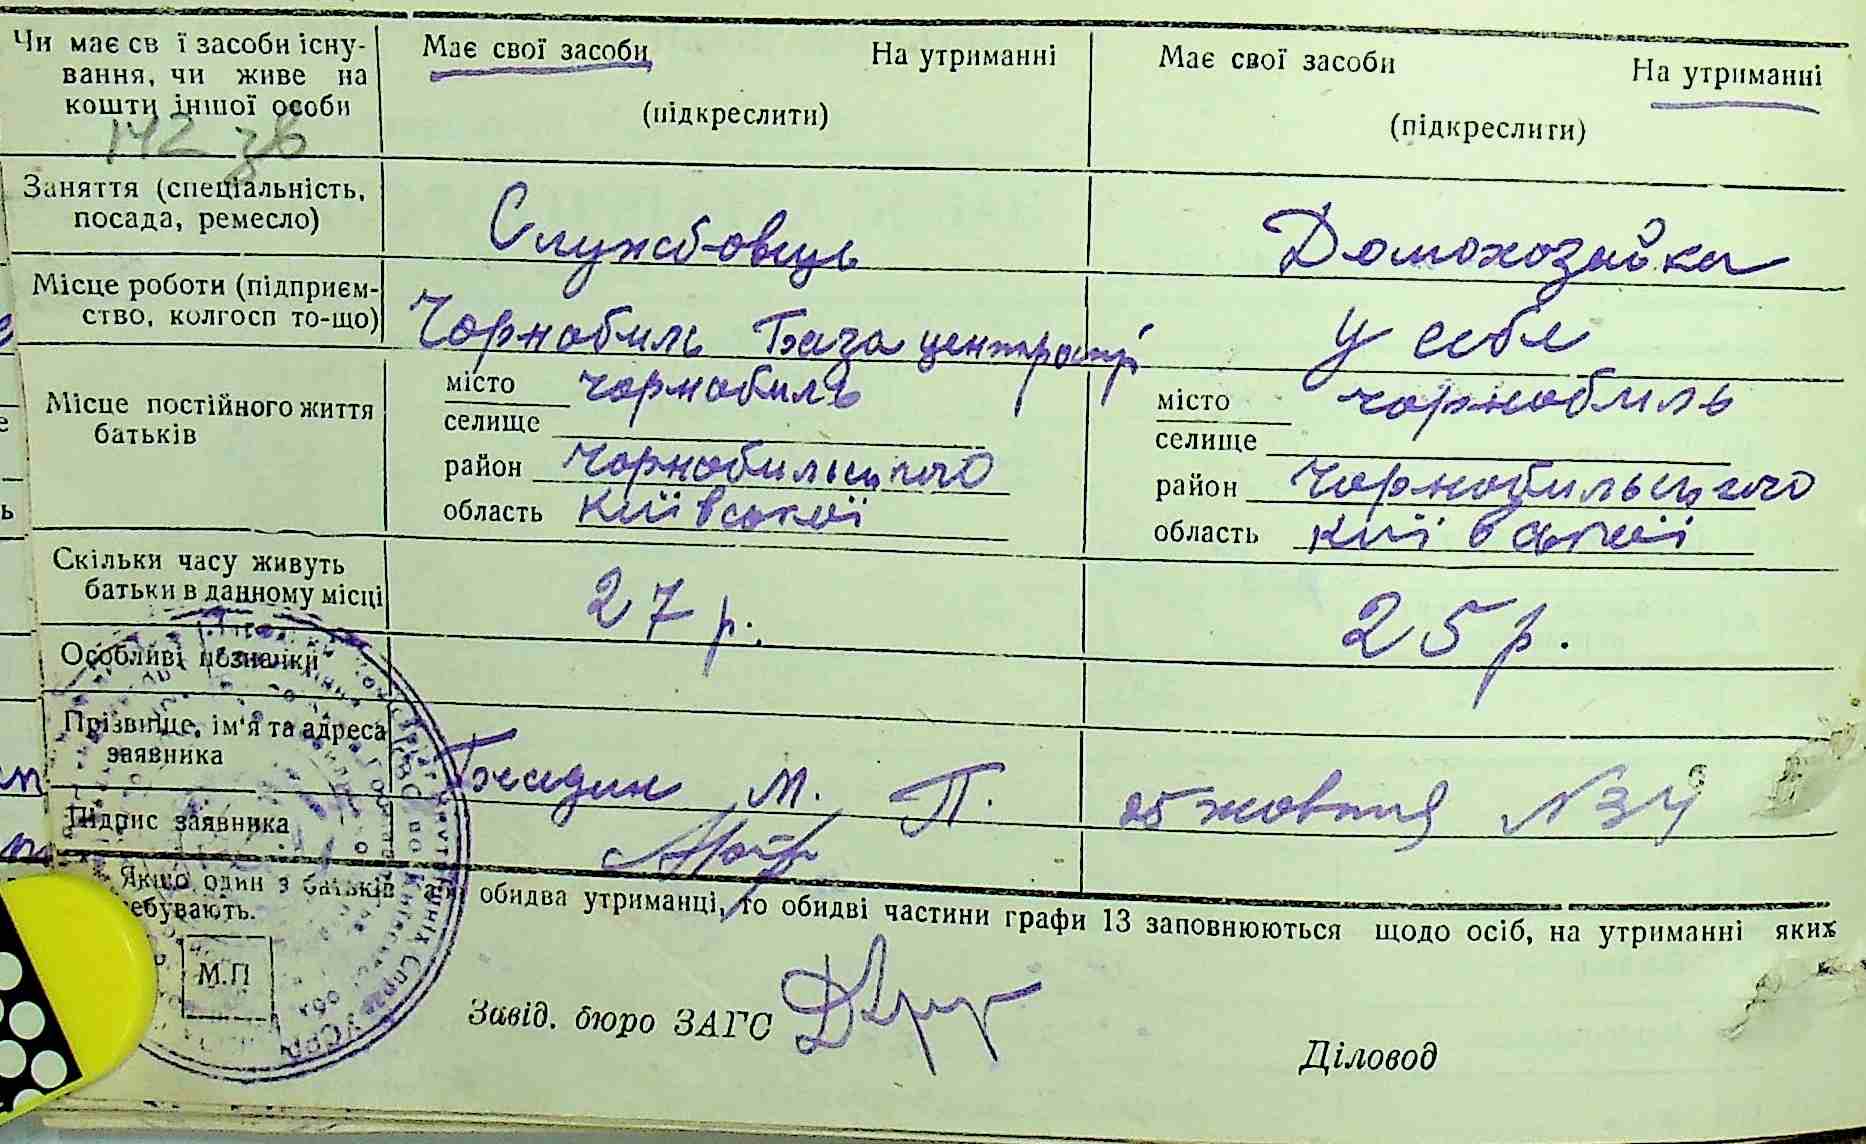 Чи має св ї засоби існу-
вання, чи живе на
кошти іншої особи
142 зв
Має свої засоби На утриманні
(підкреслити)
Має свої засоби На утриманні
(підкреслити)
Заняття (спеціальність,
посада, ремесло)
Службовець
Домохозяйка
Місце роботи (підприєм-
ство, колгосп то-що)
Чорнобиль База
у себе
Місце постійного життя
батьків
місто чорнобиль
селище
район чорнобильського
область київської
місто чорнобиль
селище
район чорнобильського
область київської
Скільки часу живуть
батьки в данному місці
27 р.
25 р.
Особливі познаки
Прізвище, ім'я та адреса
заявника
М. П. 25 жовтня N 34
Підпис заявника
Якщо один з батьків або обидва утриманці, то обидві частини графи 13 заповнюються щодо осіб, на утриманні яких
М.П
Завід. бюро ЗАГС
Діловод